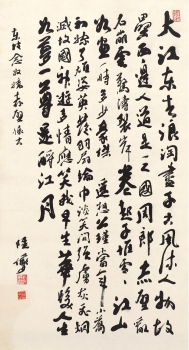 大江东去浪淘尽千古风流人物故
垒西边人道是三国周郎赤壁乱
石崩云惊涛裂岸卷起千堆雪江山
如画一时多少豪杰遥想公瑾当年小乔
初嫁了雄姿英发羽扇纶巾谈笑间强虏灰飞烟
灭故国神游多情应笑我早生华发人生
如梦一尊还酹江月
东坡念奴娇赤壁怀古